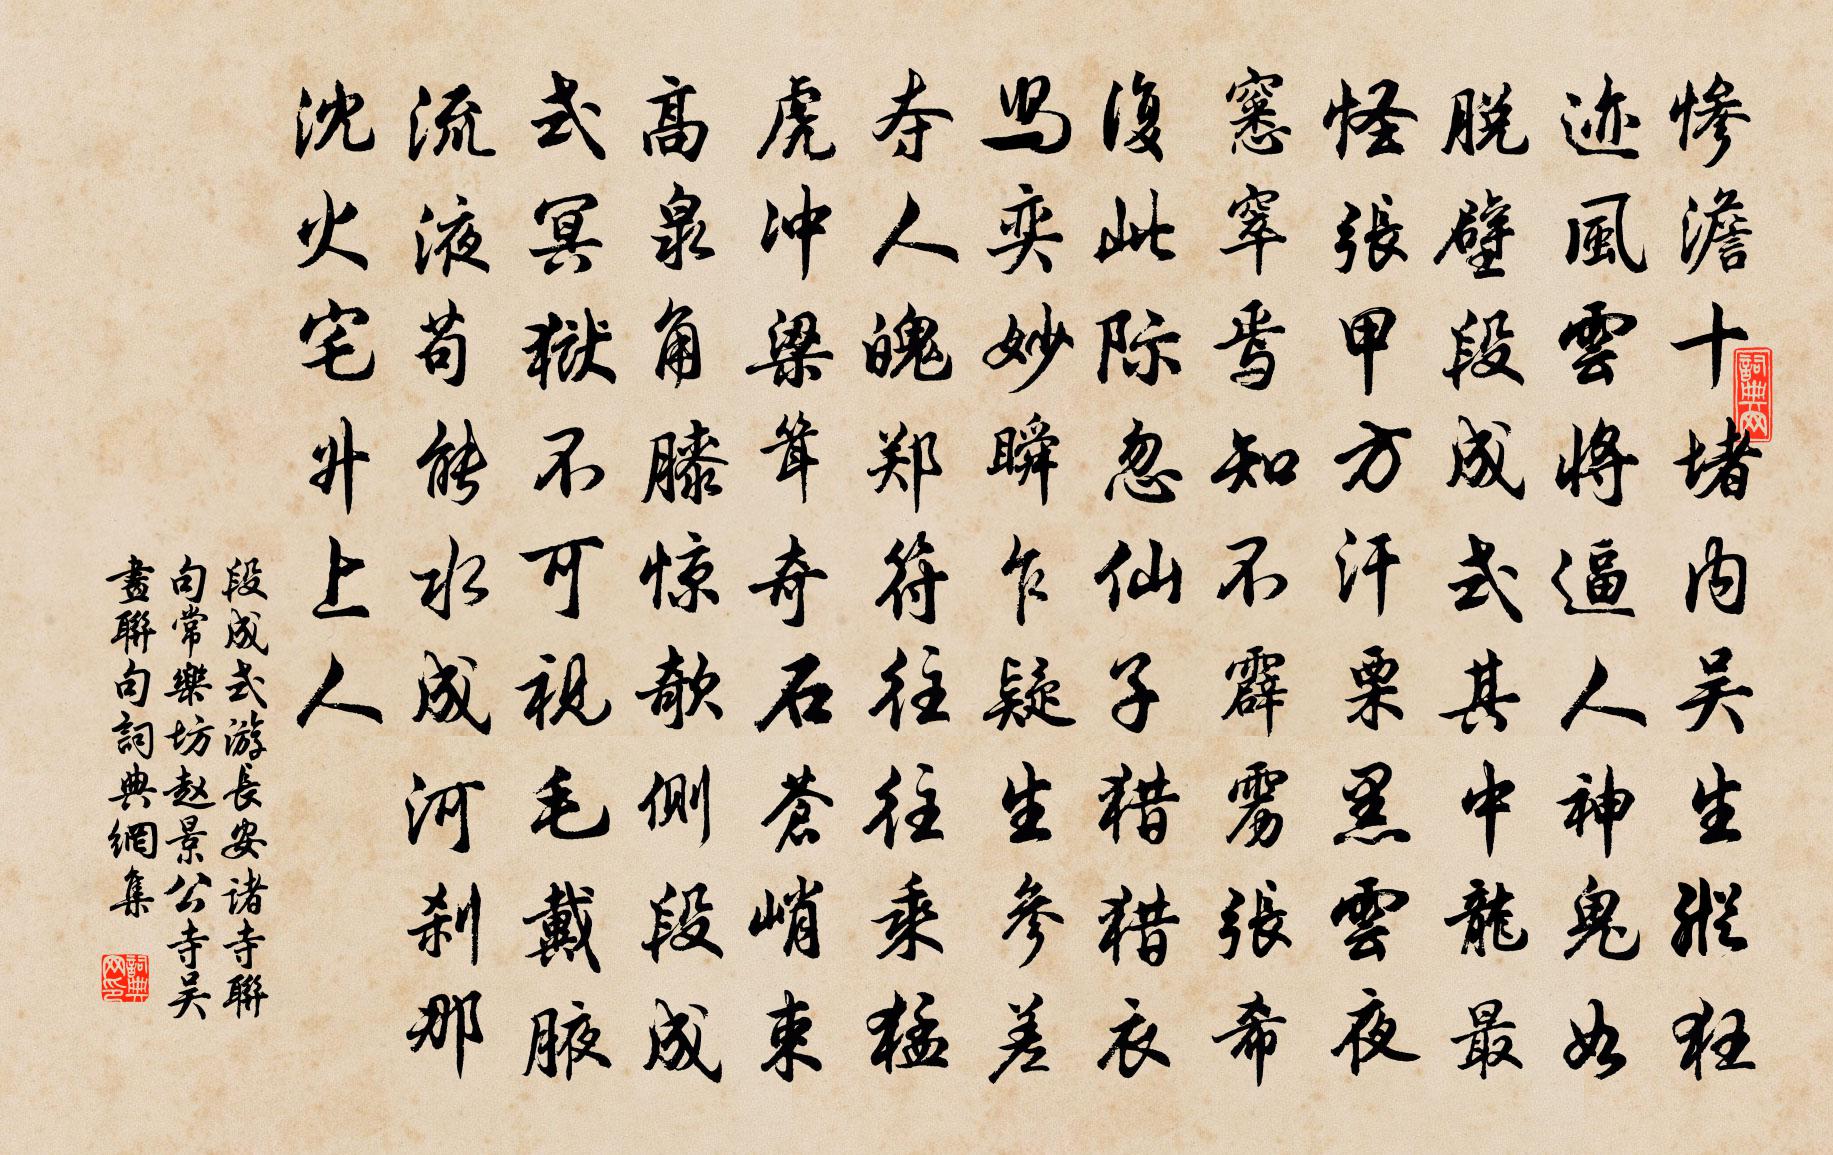 惨澹十堵内吴生縱狂
迹風雲將逼人神鬼如
脱壁段成式其中龍最
怪張甲方汗栗黑雲夜
窸窣焉知不霹雳張希
復此际忽仙子猎猎衣
舄奕妙瞬乍疑生参差
夺人魄郑符往往乘猛
虎冲梁耸奇石苍峭束
高泉角膝惊欹側段成
式冥獄不可視毛戴腋
流液苟能水成河刹那
沈火宅升上人
段成式游長安诸寺聯
句常樂坊赵景公寺吴
畫聯句詞典網集
詞典网
詞典网印